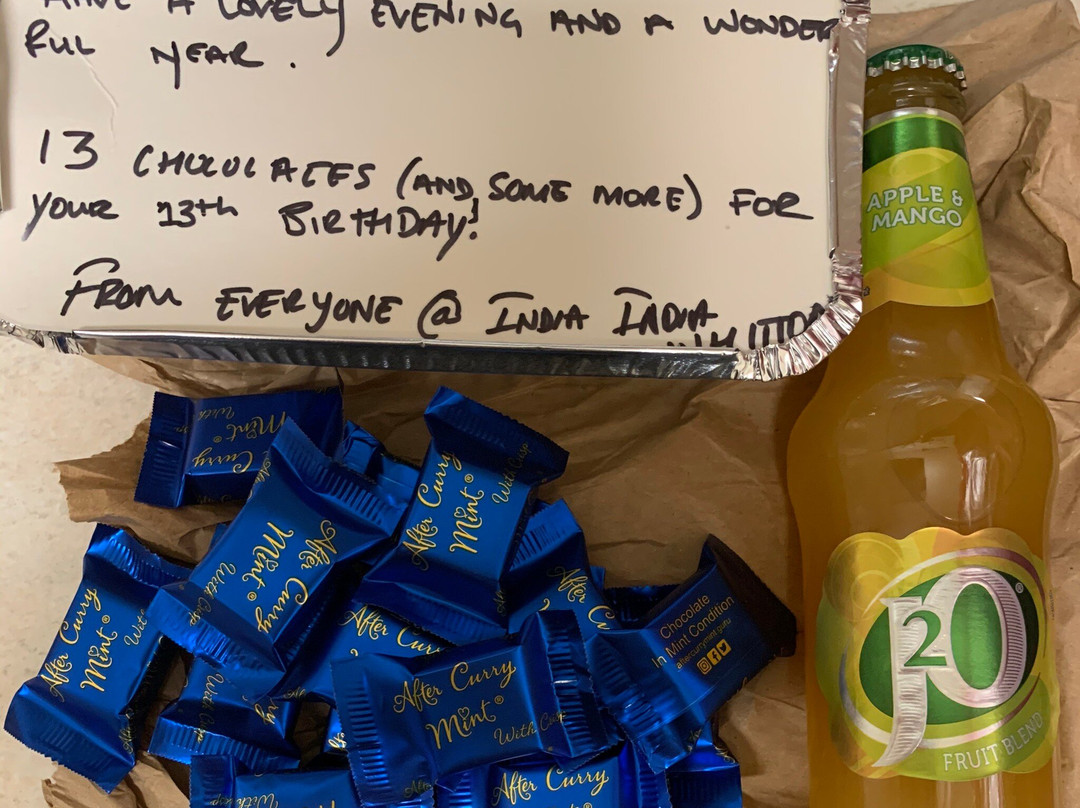 HAVE A LOVELY EVENING AND A WONDER
FUL YEAR.
13 CHOCOLATES (AND SOME MORE) FOR
YOUR 13th BIRTHDAY!
FROM EVERYONE @ INDIA INDIA
APPLE &
MANGO
J2O®
FRUIT BLEND
Curry
Mint®
With
After Curry
Mint®
With Crisp
After Curry
Mint®
With Crisp
After Curry
Mint®
Wit
After Cu
After Curry
Mint®
With Crisp
Chocolate
In Mint Condition
aftercurrymint.guru
After Curry